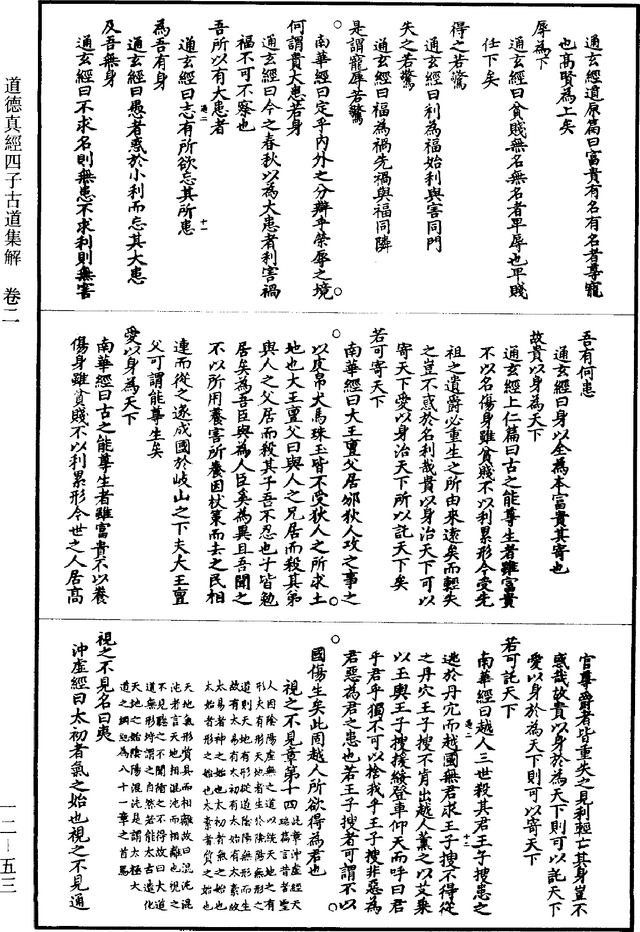 通玄經道原篇曰富貴有名有名者尊寵
也高賢為上矣
辱為下
通玄經曰貧賤無名無名者卑辱也卑賤
仕下矣
得之若驚
通玄經曰利為福始利與害同門
失之若驚
通玄經曰福為禍先禍與福同隣
是謂寵辱若驚
南華經曰定乎內外之分辯乎榮辱之境
何謂貴大患若身
通玄經曰今之春秋以為大患者利害禍
福不可不察也
吾所以有大患者
通玄經曰志有所欲忘其所患
為吾有身
通玄經曰愚者惑於小利而忘其大患
及吾無身
通玄經曰不求名則無患不求利則無害
吾有何患
通玄經曰身以全為本富貴其寄也
故貴以身為天下
通玄經上仁篇曰古之能尊生者雖富貴
不以名傷身雖貧賤不以利累形今受先
祖之遺爵必重生之所由來遠矣而輕失
之豈不惑於名利哉貴以身治天下可以
寄天下愛以身治天下所以託天下矣
若可寄天下
南華經曰大王亶父居邠狄人攻之事之
以皮帛犬馬珠玉皆不受狄人之所求土
地也大王亶父曰與人之兄居而殺其弟
與人之父居而殺其子吾不忍也子皆勉
居矣為吾臣與為人臣奚為異且吾聞之
不以所用養害所養因杖策而去之民相
連而從之遂成國於岐山之下夫大王亶
父可謂能尊生矣
愛以身為天下
南華經曰古之能尊生者雖富貴不以養
傷身雖貧賤不以利累形今世之人居高
官尊爵者皆重失之見利輕亡其身豈不
惑哉故貴以身於為天下則可以託天下
愛以身於為天下則可以寄天下
若可託天下
南華經曰越人三世殺其君王子搜患之
逃於丹穴而越國無君求王子搜不得從
之丹穴王子搜不肯出越人薰之以艾乘
以玉輿王子搜援綏登車仰天而呼曰君
乎君乎獨不可以捨我乎王子搜非惡為
君惡為君之患也若王子搜者可謂不以
國傷生矣此固越人所欲得為君也
視之不見章第十四
此章沖虛經天瑞篇言昔者聖
人因陰陽虛無之道以統天地之有
形夫有形天地者生於陰陽無形之
道則天地有形從道陰陽無形而生
故有太易有太初有太始有太素故
太易者神之始也太初者氣之始也
太始者形之始也太素者質之始也
天地氣形質具而相離故曰混沌混
沌者言天地相混沌而相離也視之
不見聽之不聞循之不得故曰大道
道無形埒謂之自然若能太古遠化
天地之始陰陽混沌是謂太極大
道之綱紀為八十一章之首焉
視之不見名曰夷
沖虛經曰太初者氣之始也視之不見通
道德真經四子古道集解　卷二
一二—五三